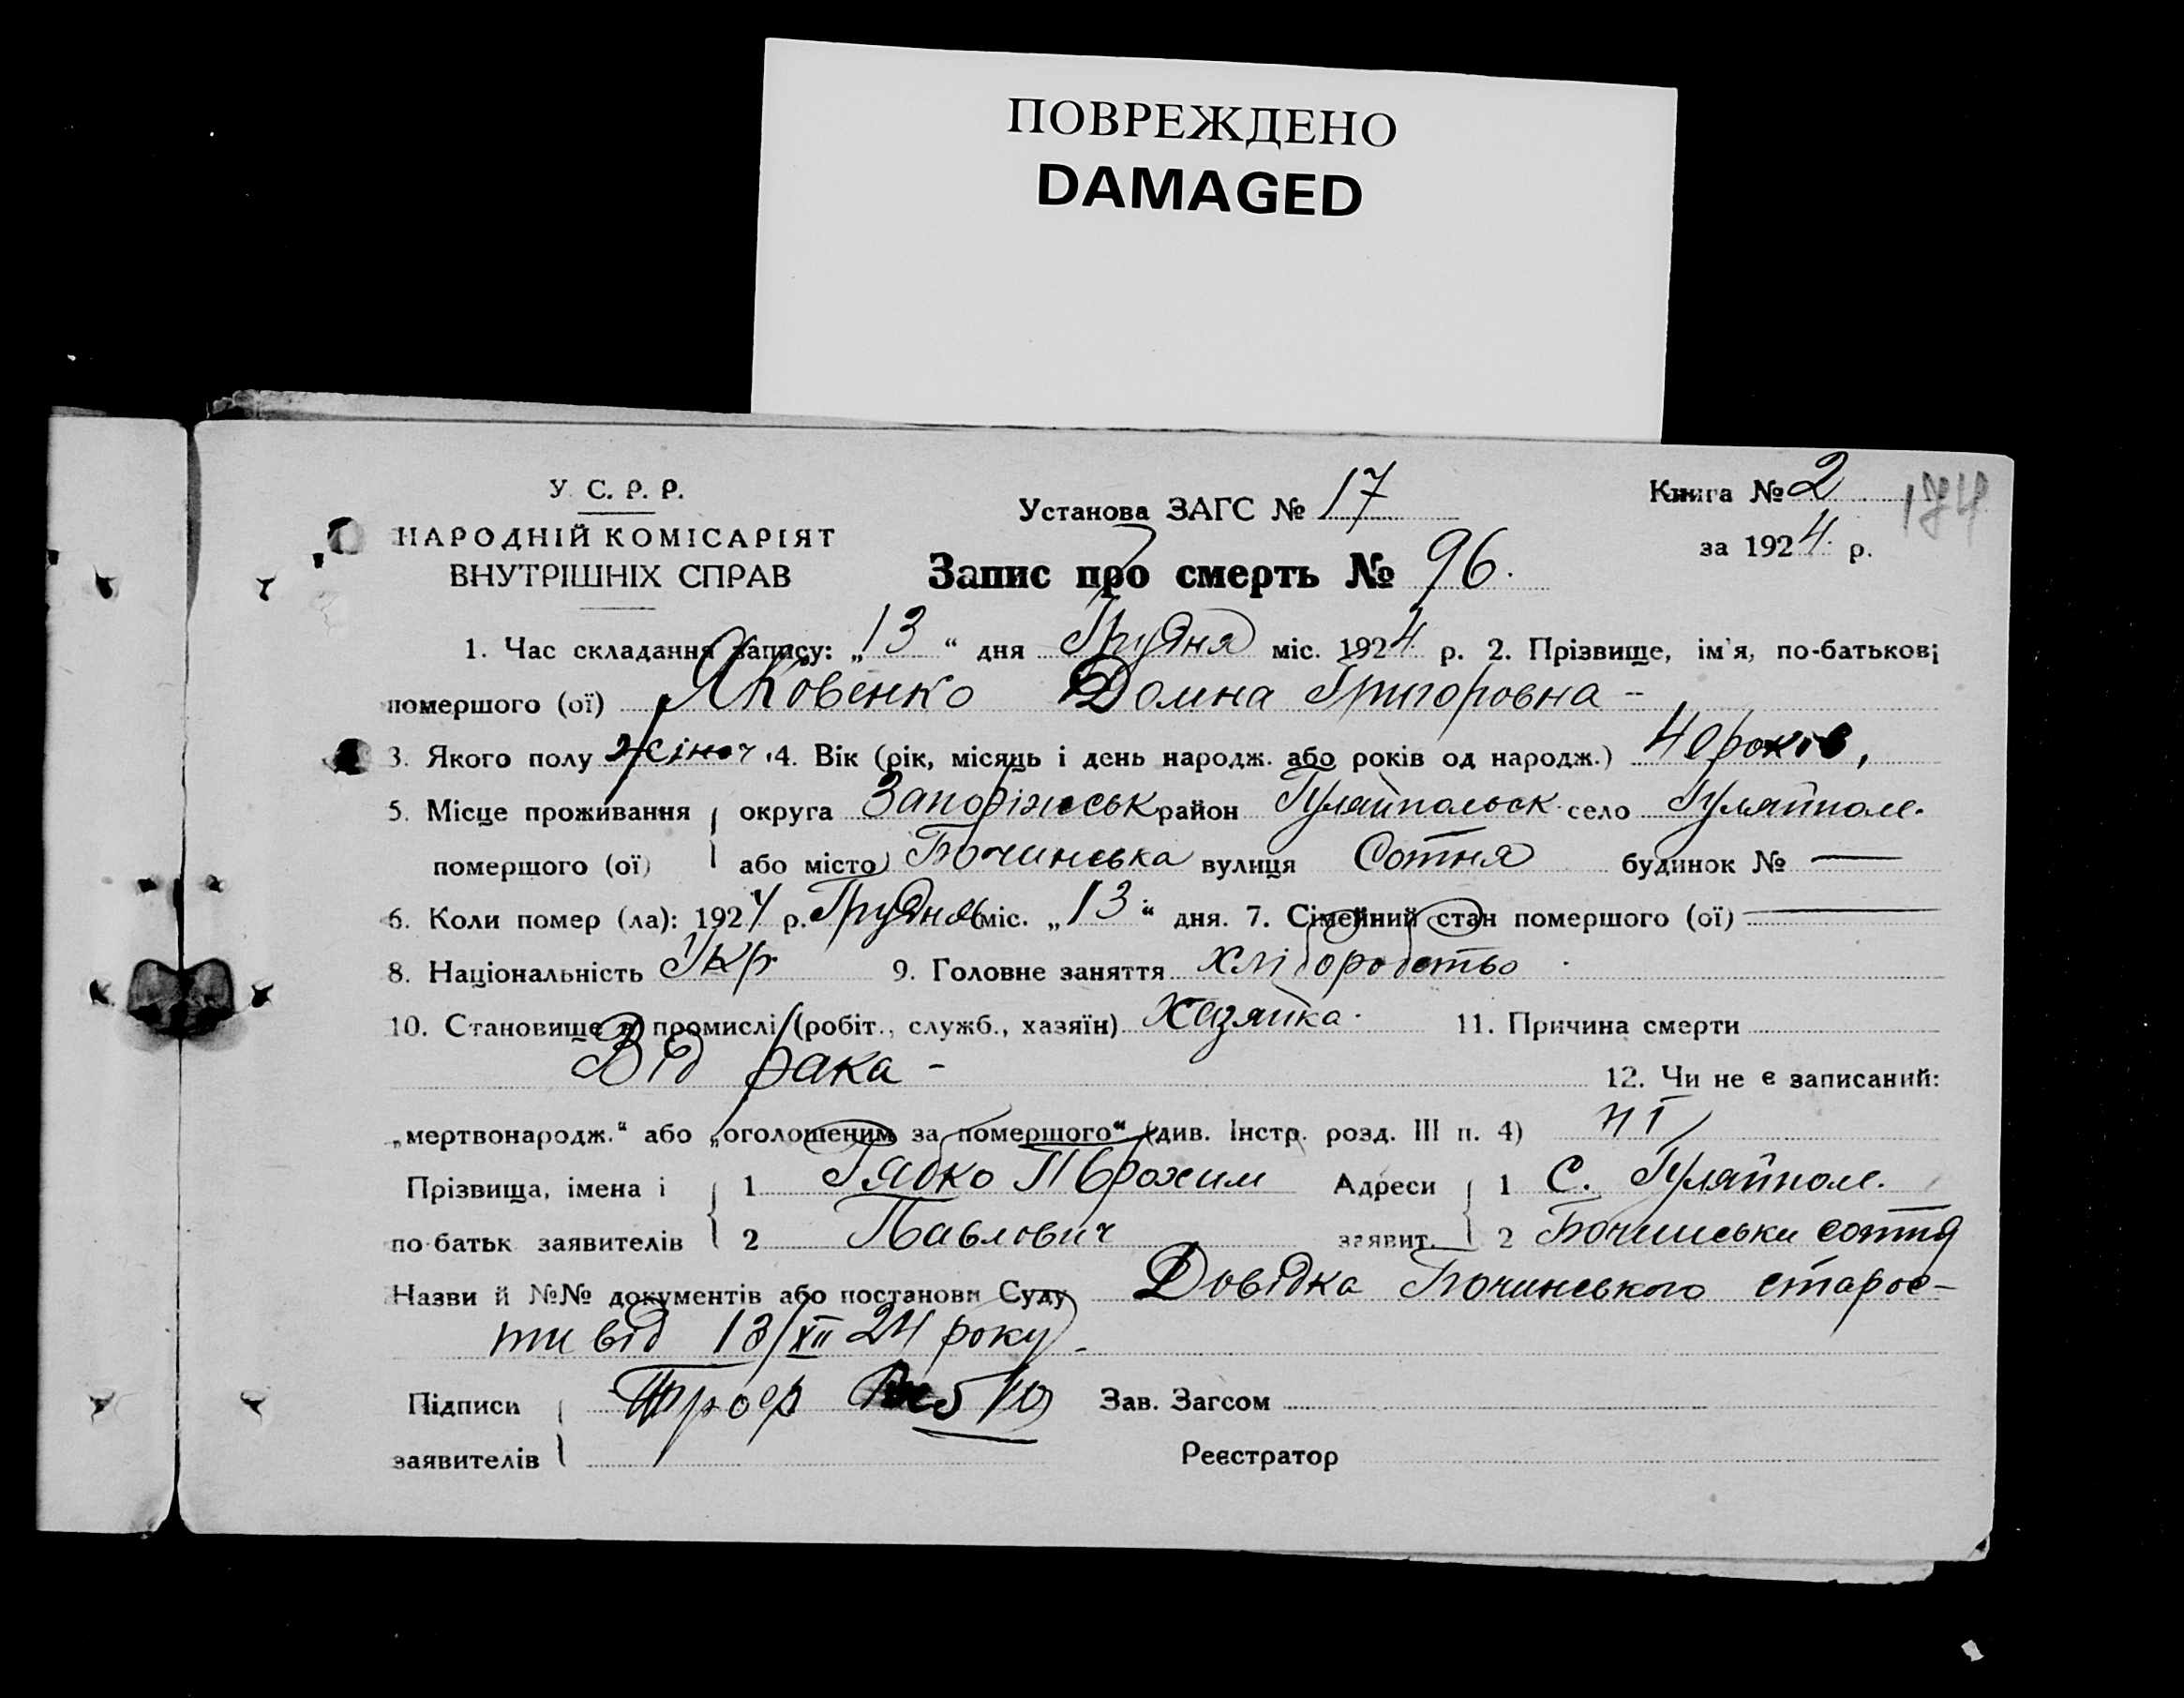 ПОВРЕЖДЕНО
DAMAGED
У. С. Р. Р.
НАРОДНІЙ КОМІСАРІЯТ
ВНУТРІШНІХ СПРАВ
Установа ЗАГС № 17
Книга № 2
за 1924 р.
Запис про смерть № 96.
1. Час складання запису: „13“ дня Грудня міс. 1924 р. 2. Прізвище, ім'я, по-батькові
помершого (ої) Яковенко Домна Григоровна -
3. Якого полу жіноч. 4. Вік (рік, місяць і день народж. або років од народж.) 40 років,
5. Місце проживання помершого (ої) округа Запоріжськ район Гуляйпольськ. село Гуляйполе.
або місто) Бочинська вулиця Сотня будинок № —
6. Коли помер (ла): 1924 р. Грудня міс. „13“ дня. 7. Сімейний стан помершого (ої) —
8. Національність Укр 9. Головне заняття хліборобство
10. Становище в промислі (робіт., служб., хазяїн) Хазяйка. 11. Причина смерти
Від рака - 12. Чи не є записаний:
„мертвонародж.“ або „оголошеним за помершого“ (див. Інстр. розд. III п. 4) ні
Прізвища, імена і по-батьк. заявителів 1 Рябко Адреси заявит. 1 С. Гуляйполе.
2 Павлович 2 Бочинська сотня
Назви й №№ документів або постанови Суду Довідка Бочинського старос-
ти від 13/XII 24 року.
Підписи заявителів Зав. Загсом
Реєстратор